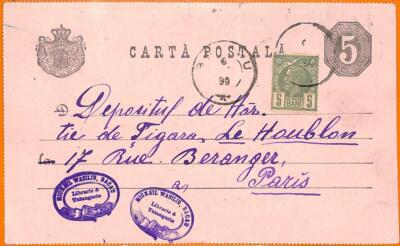 CARTĂ POSTALĂ
5
U
6
99
5 BANI 5
Depositul de Hâr.
tie de Tigara, Le Houblon
17 Rue. Beranger,
a, Paris
MICHAIL WASILIU, BACAU
Librarie &
Tutungerie
MICHAIL WASILIU, BACAU
Librarie &
Tutungerie